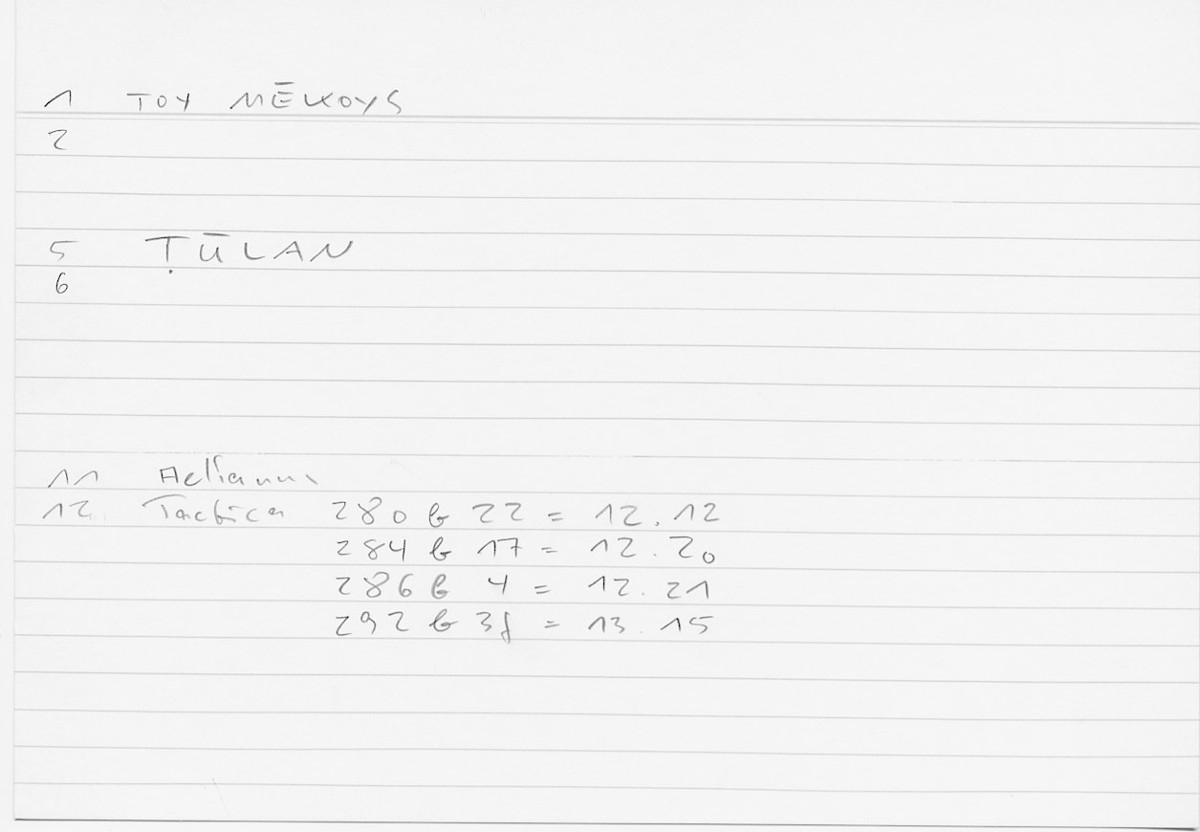 1 TOY MĒKOYS
2
5 ṬŪLAN
6
11 Aelianus
12 Tactica 280 b 22 = 12.12
284 b 17 = 12.20
286 b 4 = 12.21
292 b 3f = 13.15